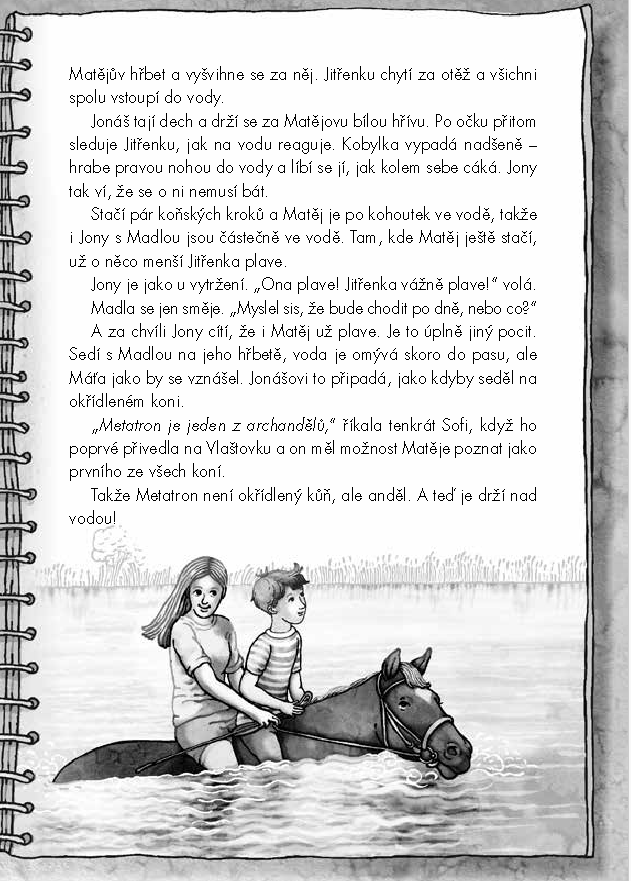 Matějův hřbet a vyšvihne se za něj. Jitřenku chytí za otěž a všichni
spolu vstoupí do vody.
Jonáš tají dech a drží se za Matějovu bílou hřívu. Po očku přitom
sleduje Jitřenku, jak na vodu reaguje. Kobylka vypadá nadšeně –
hrabe pravou nohou do vody a líbí se jí, jak kolem sebe cáká. Jony
tak ví, že se o ni nemusí bát.
Stačí pár koňských kroků a Matěj je po kohoutek ve vodě, takže
i Jony s Madlou jsou částečně ve vodě. Tam, kde Matěj ještě stačí,
už o něco menší Jitřenka plave.
Jony je jako u vytržení. „Ona plave! Jitřenka vážně plave!“ volá.
Madla se jen směje. „Myslel sis, že bude chodit po dně, nebo co?“
A za chvíli Jony cítí, že i Matěj už plave. Je to úplně jiný pocit.
Sedí s Madlou na jeho hřbetě, voda je omývá skoro do pasu, ale
Máťa jako by se vznášel. Jonášovi to připadá, jako kdyby seděl na
okřídleném koni.
„Metatron je jeden z archandělů,“ říkala tenkrát Sofi, když ho
poprvé přivedla na Vlaštovku a on měl možnost Matěje poznat jako
prvního ze všech koní.
Takže Metatron není okřídlený kůň, ale anděl. A teď je drží nad
vodou!